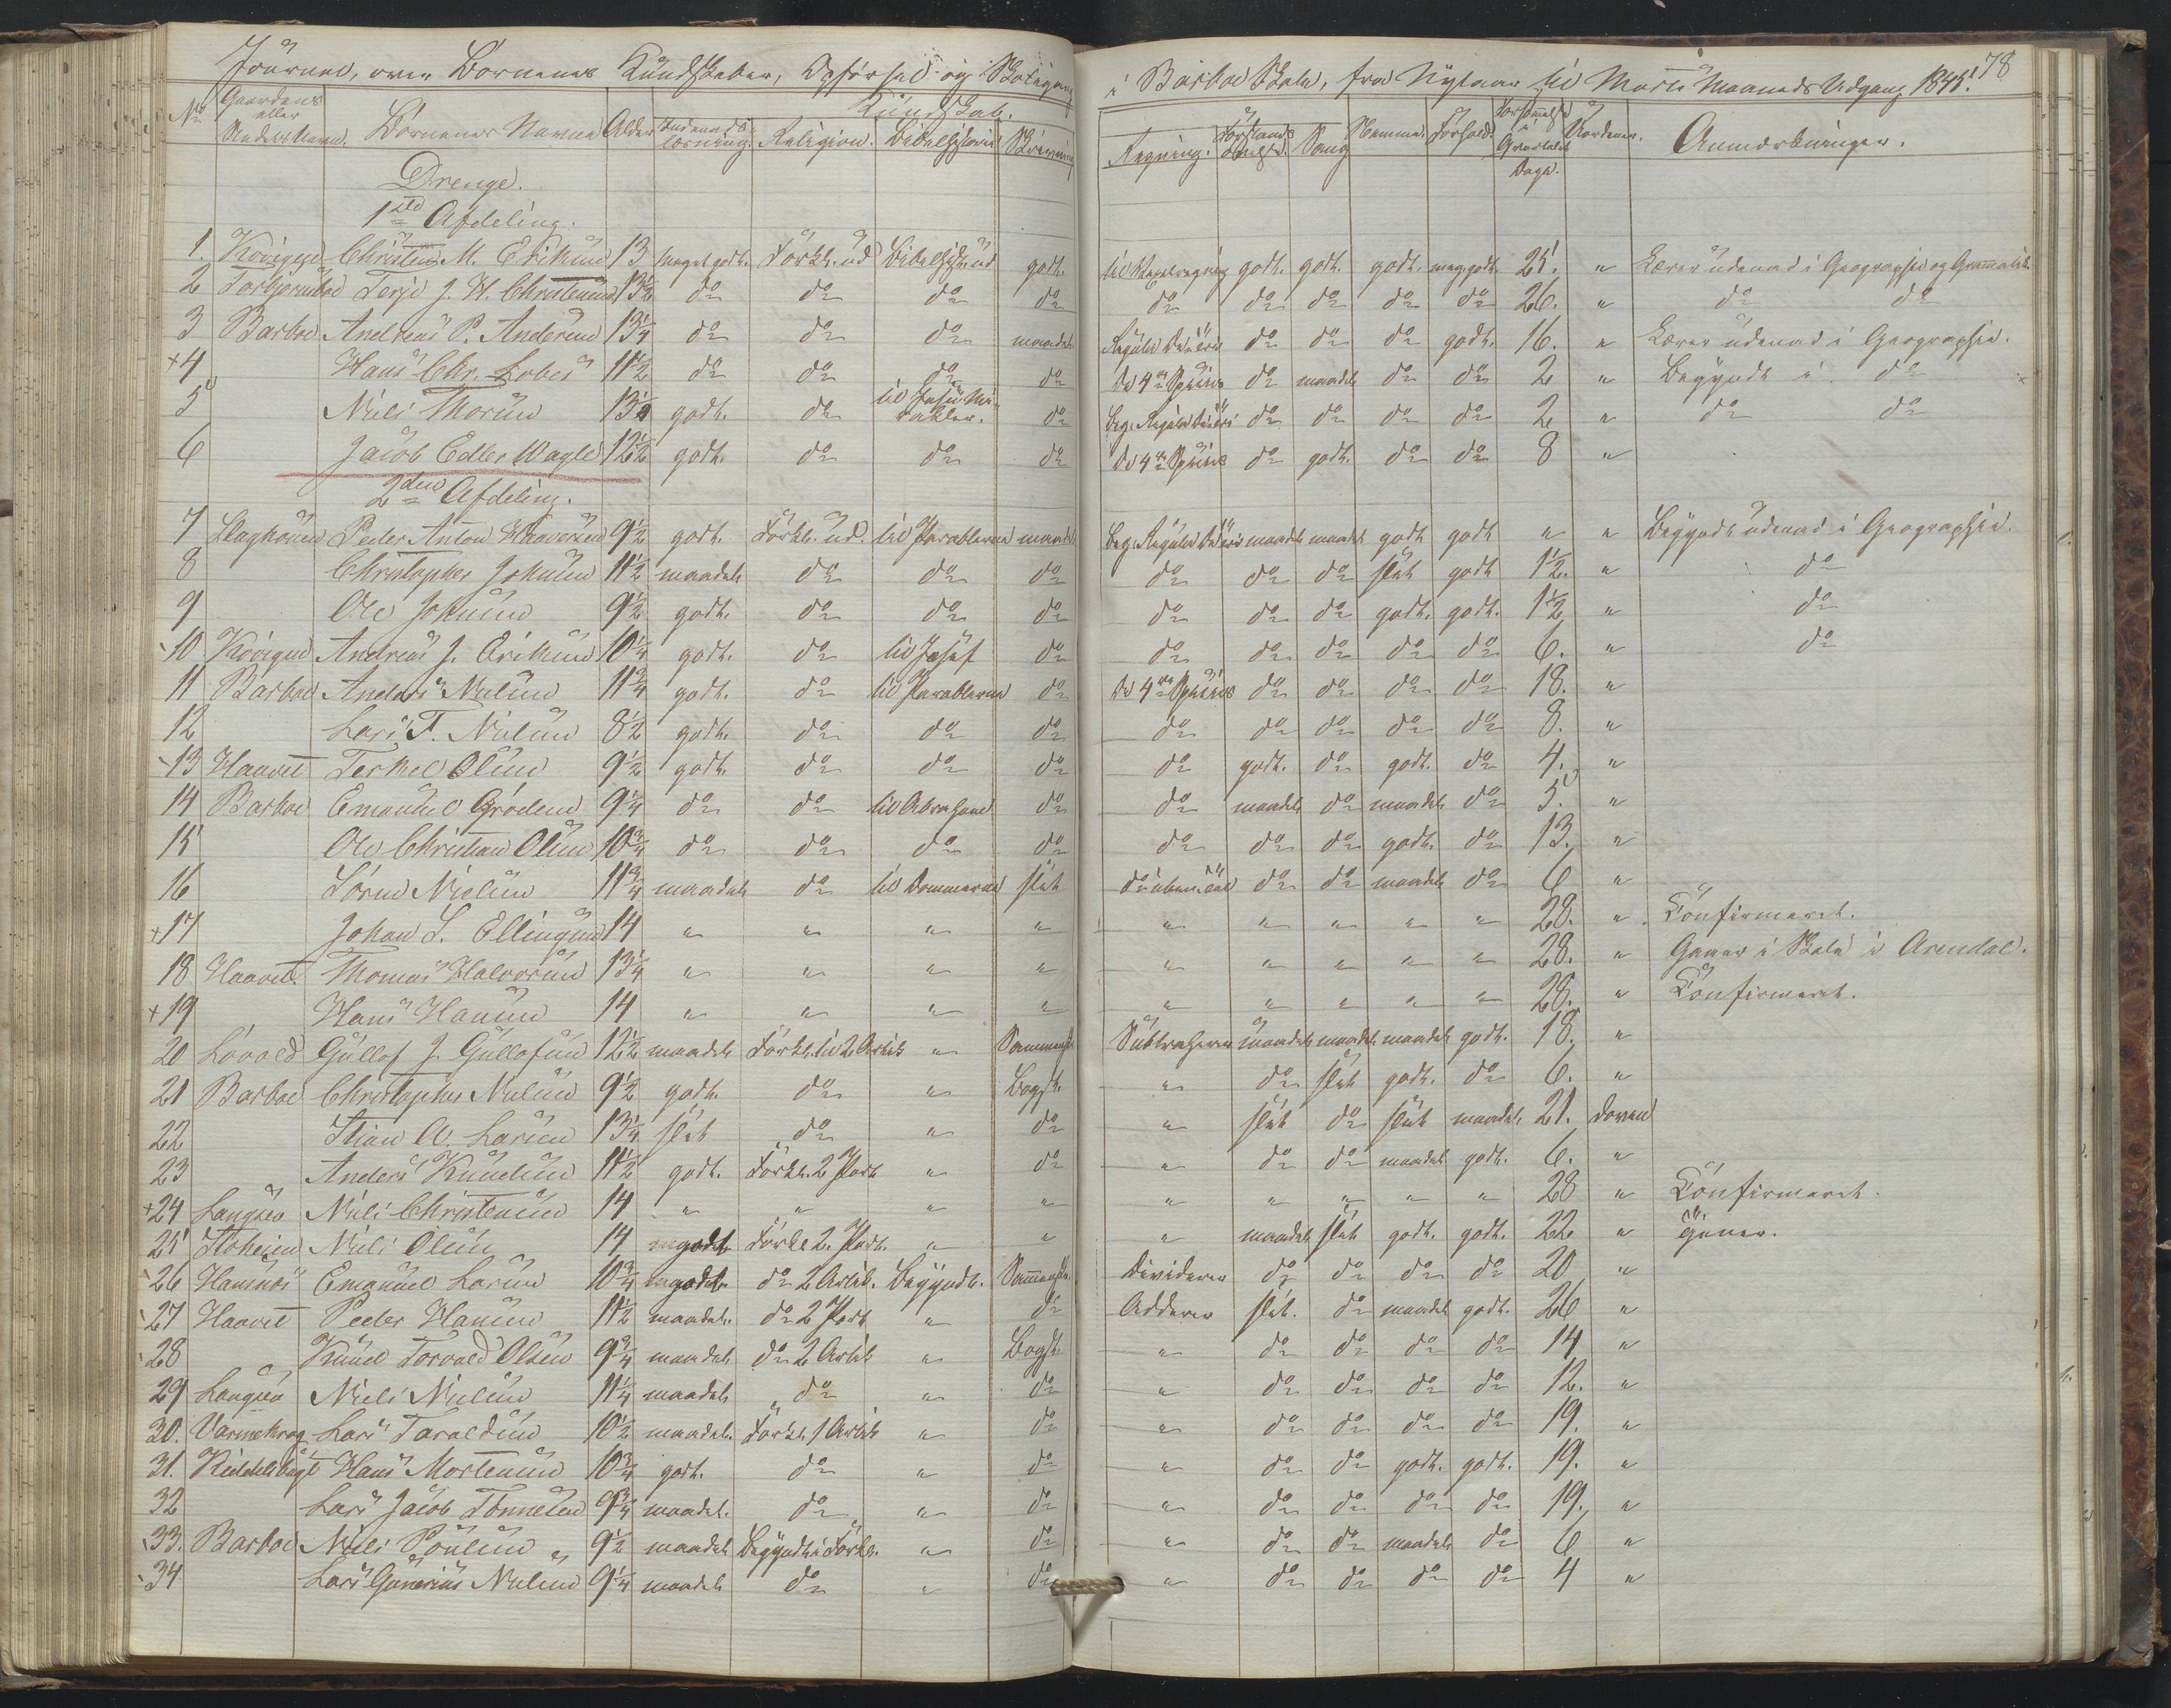 Journal, over Børnenes Kundskaber, Opførsel og Skolegang i Barboe Skole, fra Nytaar til Marts Maaneds Udgang 1845. 78
No Gaardens eller Stedets Navn. Børnenes Navne Alder Indenads læsning. Kundskab. Religion. Bibelhistorie Skrivning Regning. Forstands øvelse. Sang Nemme. Forhold. Forsømmelse i Qvartalet Dage. Anmærkninger.
Drenge.
1ste Afdeling.
1. Christen M. Eriksen 13 meget godt. Forkl. ud Bibelhist. ud godt. godt. godt. godt. meg. godt. 25. " Læser udenad i Geographie og Grammatik.
2 Terje J. H. Christensen 13½ do do do do do do do do do 26. " do do
3 Barboe Andreas P. Andersen 13¼ do do do maadel. Reguladetri do do do godt. 16. " Læser udenad i Geographie.
+4 Hans Chr. Lobes 11½ do do do do De 4re Species do maadel. do do 2 " Begyndt i do
5 Niels Thorsen 13¼ godt. do til Jesu Mirakler. do beg. Reguladetri do do do do 2 " do do
6 Jacob Edler Wagle 12½ godt. do do do De 4re Species do godt. do do 8 "
2den Afdeling.
7 Peder Anton Haaversen 9½ godt. Forkl. ud. til Parablerne maadel. beg. Reguladetri maadel. maadel. godt godt " " Begyndt udenad i Geographie.
8 Christopher Johnsen 11½ maadel. do do do do do do slet godt 1½. " do
9 Ole Johnsen 9½ godt. do do do do do do godt. godt. 1½ " do
10 Andreas J. Eriksen 10¼ godt. do til Josef do do do do do do 6. " do
11 Barboe Anders Nielsen 11¾ godt. do til Parablerne do De 4re Species do do do do 18. "
12 Lars T. Nielsen 8½ godt. do do do do do do do do 8. "
13 Haavet Terkel Olsen 9½ godt. do do do do godt. do godt. do 4. "
14 Barboe Emanuel Grødem 9¼ do do til Abraham do do maadel. do maadel. do 5. "
15 Ole Christian Olsen 10¾ do do do do do do do godt. do 13. "
16 Søren Nielsen 11¾ maadel. do til Dommerne slet do do maadel. do 6 "
+17 Johan S. Ellingsen 14 " " " " " " " " " 28. " Confirmeret.
18 Haavet. Thomas Halvorsen 13¼ " " " " " " " " " 28. " Gaaer i Skole i Arendal.
+19 Hans Hansen 14 " " " " " " " " " 28. " Confirmeret.
20 Løvold Gullof J. Gullofsen 12½ maadel. Forkl. til 2 Artik. " Sammensk. Subtraherer maadel. maadel. maadel. godt. 18. "
21 Barboe Christopher Nielsen 9½ godt. do " Bogst. " do slet godt. do 6. "
22 Stian A. Larsen 13¼ slet do " do " slet do slet maadel. 21. doven
23 Anders Knudsen 11½ godt. Forkl. 2 Part " do " do do maadel. godt. 6. "
+24 Langsæ Niels Christensen 14 " " " " " " " " " 28 " Confirmeret.
25 Stoheien Niels Olsen 14 godt. Forkl. 2. Part. " " " maadel. slet godt. godt. 22 "
26 Emanuel Larsen 10¾ godt. do 2 Artik. Begyndt. Sammensk. Dividerer do do do do 20 "
27 Haavet Peder Hansen 11½ maadel. do 2 Part " do Adderer slet. do maadel. godt. 26 "
28 Knud Torvald Olsen 9¾ maadel. do 2 Artik " Bogst. " do do do do 14 "
29 Langsæ Niels Nielsen 11¼ maadel. do " do " do do do do 12. "
30. Varmekrog Lars Taraldsen 10½ maadel. Forkl. 1 Artik " do " do do do do 19. "
31. Kittelsbugt Hans Mortensen 10¾ godt. do " do " do do godt. godt. 19. "
32 Lars Jacob Tønnesen 9¾ maadel. do " do " do do do do 19. "
33. Barboe Niels Poulsen 9½ maadel. Begyndt i Forkl. " do " do do maadel. do 6 "
34 Lars Gunerius Nielsen 9¼ maadel. do " do " do do do do 4 "